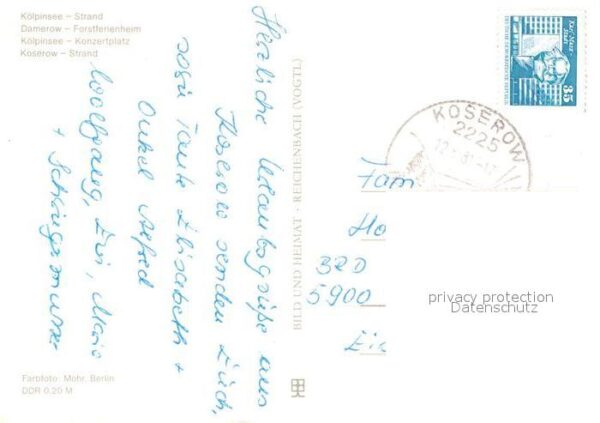 Kölpinsee – Strand
Damerow – Forstferienheim
Kölpinsee – Konzertplatz
Koserow – Strand
Herzliche Urlaubsgrüße aus
Koserow senden Euch,
sogar Tante Elisabeth +
Onkel Alfred
Wolfgang, Evi, Maic
+ Schwiegermutter
Farbfoto: Mohr, Berlin
DDR 0,20 M
BILD UND HEIMAT · REICHENBACH (VOGTL)
Karl-Marx-Stadt
35
KOSEROW
2225
Fam
Ho
BRD
5900
privacy protection
Datenschutz